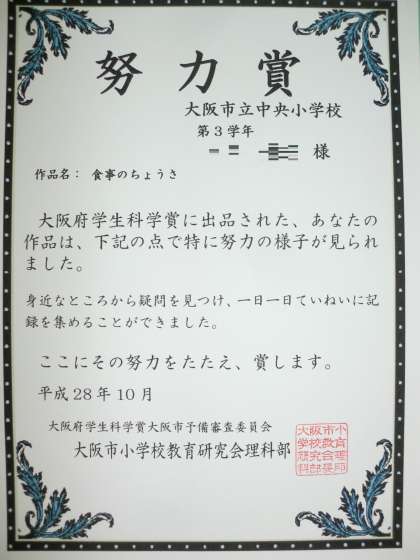 努力賞
大阪市立中央小学校
第3学年
様
作品名： 食事のちょうさ
大阪府学生科学賞に出品された、あなたの
作品は、下記の点で特に努力の様子が見られ
ました。
身近なところから疑問を見つけ、一日一日ていねいに記
録を集めることができました。
ここにその努力をたたえ、賞します。
平成28年10月
大阪府学生科学賞大阪市予備審査委員会
大阪市小学校教育研究会理科部
大阪市小
学校教育
研究会理